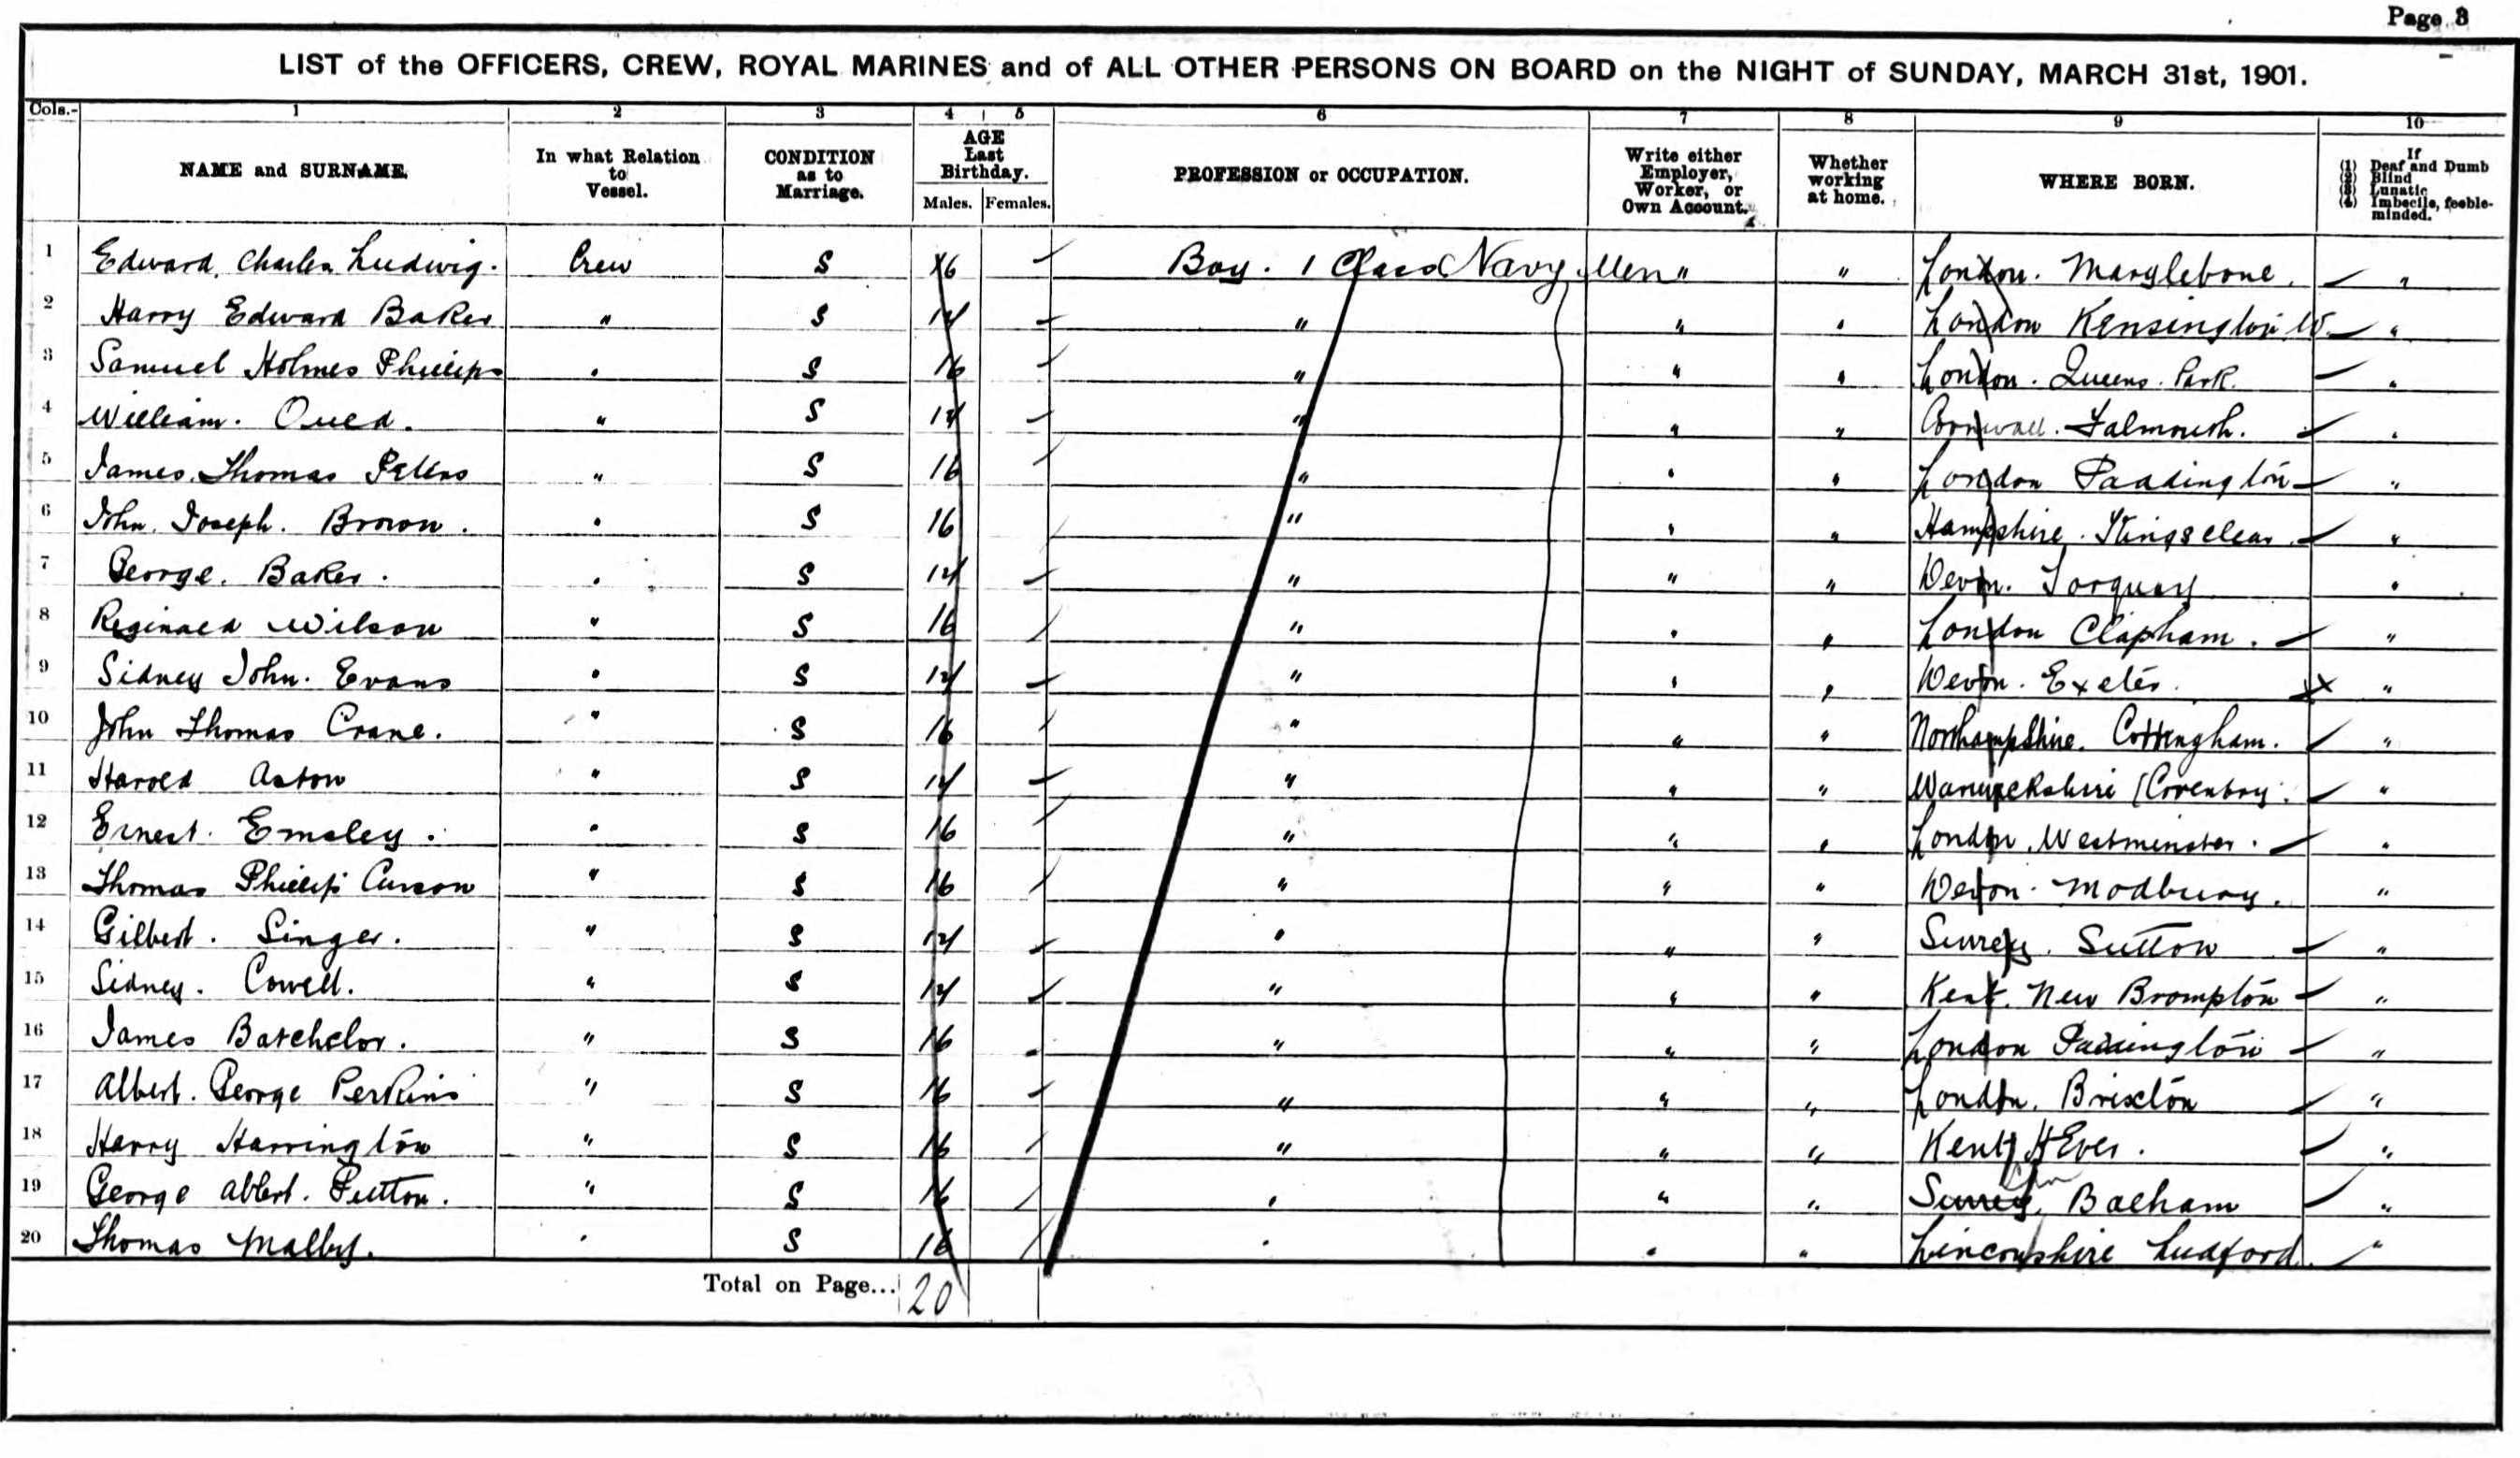 Page 3
LIST of the OFFICERS, CREW, ROYAL MARINES and of ALL OTHER PERSONS ON BOARD on the NIGHT of SUNDAY, MARCH 31st, 1901.
Cols.- 1 2 3 4 5 6 7 8 9 10
NAME and SURNAME. In what Relation to Vessel. CONDITION as to Marriage. AGE Last Birthday. Males. Females. PROFESSION or OCCUPATION. Write either Employer, Worker, or Own Account. Whether working at home. WHERE BORN. If (1) Deaf and Dumb (2) Blind (3) Lunatic (4) Imbecile, feeble-minded.
1 Edward. Charles Ludwig. Crew S 16 Boy. 1 Class Navy Men " " London. Marylebone. "
2 Harry Edward Baker " S 17 " " " London Kensington W. "
3 Samuel Holmes Phillips " S 16 " " " London. Queens. Park. "
4 William. " S 17 " " " Cornwall. Falmouth. "
5 James. Thomas Peters " S 16 " " " London Paddington "
6 John. Joseph. Brown. " S 16 " " " Hampshire. Kingsclear. "
7 George. Baker. " S 17 " " " Devon. Torquay "
8 Reginald Wilson " S 16 " " " London Clapham. "
9 Sidney John. Evans " S 17 " " " Devon. Exeter. "
10 John Thomas Crane. " S 16 " " " Northamptshire. Cottengham. "
11 Harold Aston " S 17 " " " Warwickshire (Coventry. "
12 Ernest. Emsley. " S 16 " " " London. Westminster. "
13 Thomas Phillip Curson " S 16 " " " Devon. Modbury. "
14 Gilbert. Singer. " S 17 " " " Surrey. Sutton "
15 Sidney. Cowell. " S 17 " " " Kent. New Brompton "
16 James Batchelor. " S 16 " " " London Paddington "
17 Albert. George Perkins " S 16 " " " London. Brixton "
18 Harry Harrington " S 16 " " " Kent HEver. "
19 George Albert. Putton. " S 16 " " " Surrey. Balham "
20 Thomas Malby. " S 16 " " " Linconshire Ludford. "
Total on Page... 20